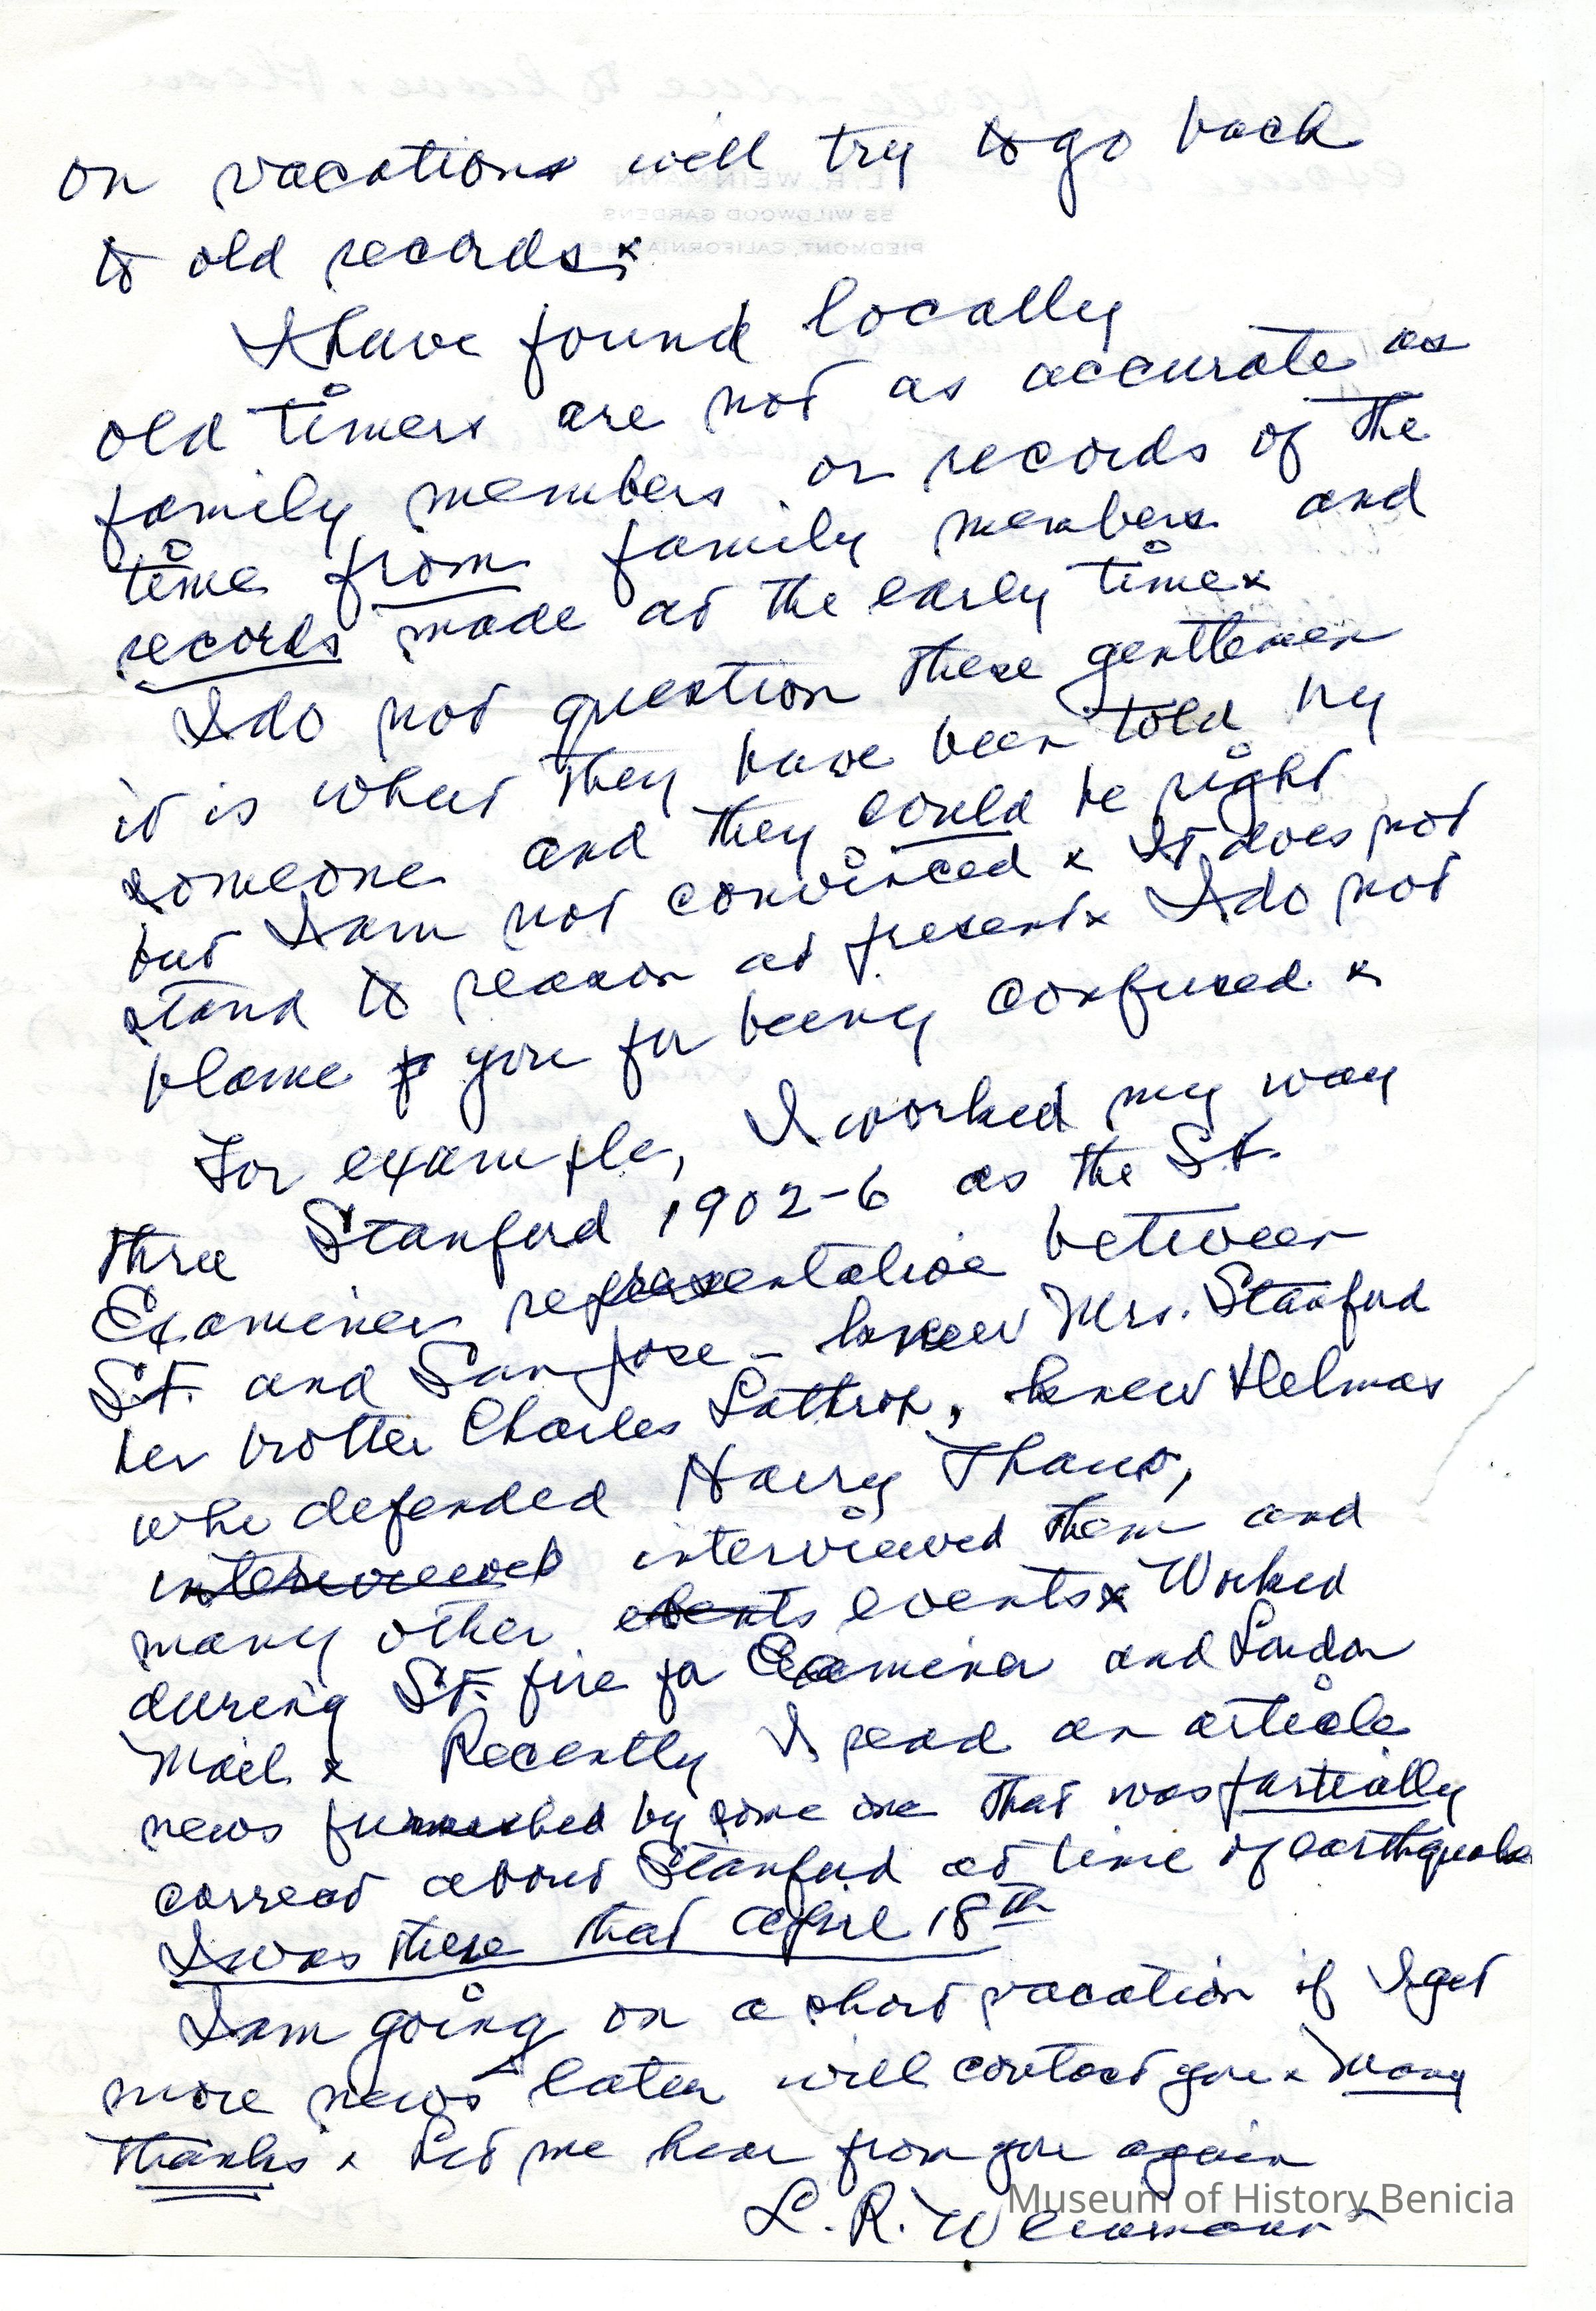 on vacations will try to go back
to old records x
I have found locally
old timers are not as accurate as
family members or records of the
time from family members and
records made at the early time x
I do not question these gentlemen
it is what they have been told by
someone and they could be right
but I am not convinced x It does not
stand to reason at present x I do not
blame you for being confused x
For example, I worked my way
thru Stanford 1902-6 as the S.F.
Examiner representative between
S.F. and San Jose - knew Mrs. Stanford
her brother Charles Lathrop, knew Delmas
who defended Harry Thaw,
interviewed interviewed them and
many other events events x Worked
during S.F. fire for Examiner and London
Mail x Recently I read an article
news furnished by some one that was partially
correct about Stanford at time of earthquake
I was there that April 18th
I am going on a short vacation if I get
more news later will contact you x Many
thanks x Let me hear from you again
L. R. Weinmann
Museum of History Benicia
L. R. WEINMANN
55 WILDWOOD GARDENS
PIEDMONT, CALIFORNIA